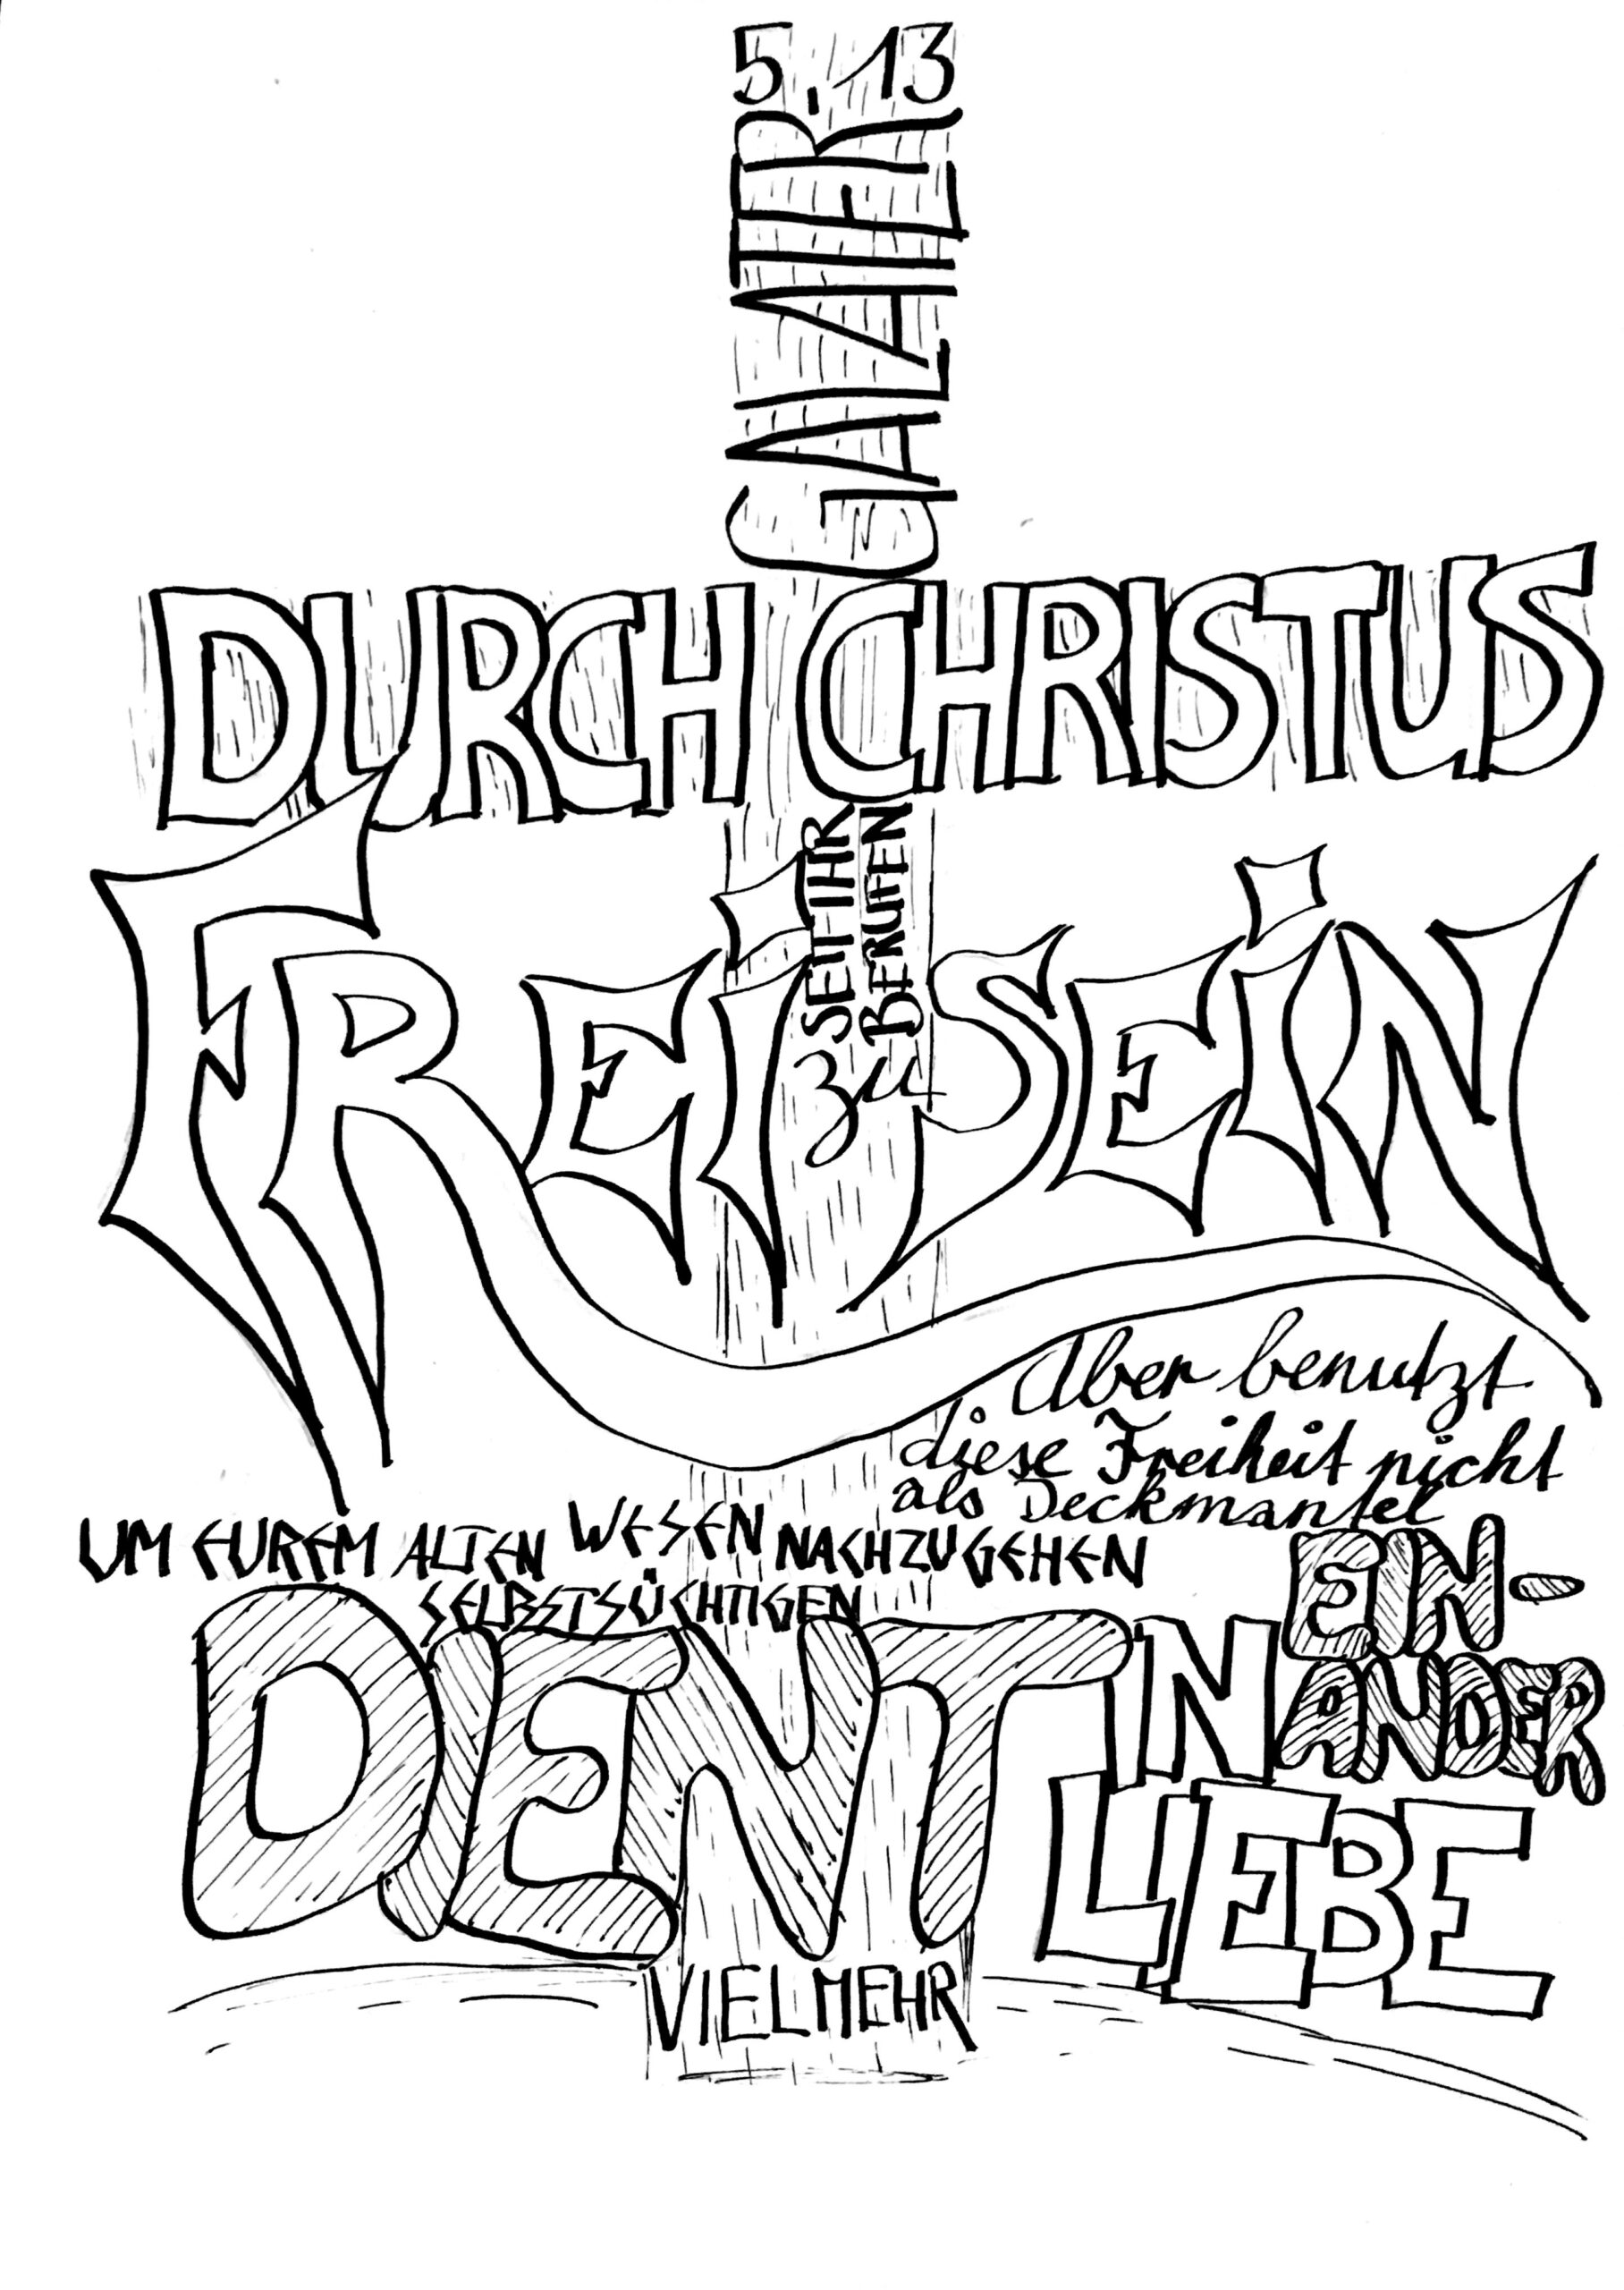 5,13
GALATER
DURCH CHRISTUS
SEIT IHR
BERUFEN
zu
FREI SEIN
Aber benutzt
diese Freiheit nicht
als Deckmantel
UM EUREM ALTEN WESEN NACHZUGEHEN
SELBSTSÜCHTIGEN
DIENT
EIN-
ANDER
IN
LIEBE
VIELMEHR